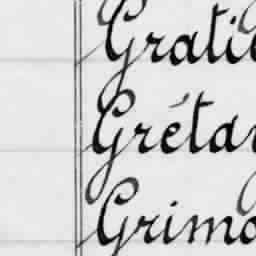 Gratie
Grétar
Grima